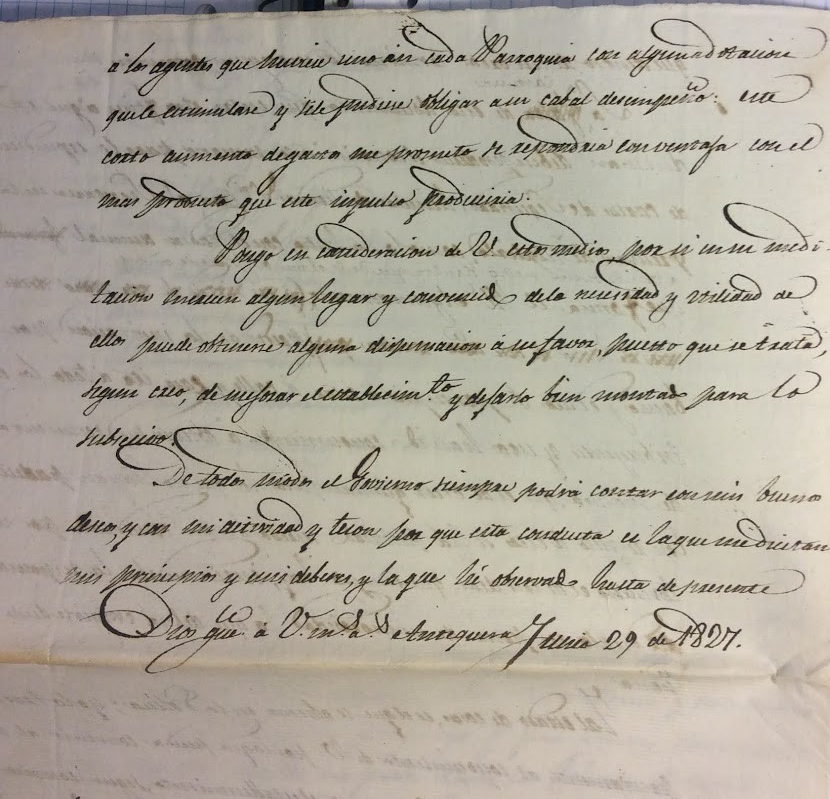 á los agentes que huviere uno á en cada Parroquia con alguna dotacion
que le estimulase y se le pudiese obligar a su cabal desempeño: este
corto aumento de gastos me prometo se repondria con ventaja con el
mas producto que este impulso produciria.
Pongo en consideracion de V. estos medios, por si en su medi-
tacion merecen algun lugar y convencido de la necesidad y utilidad de
ellos puede obtenerse alguna dispensacion á su favor, puesto que se trata,
segun creo, de mejorar el establecim.to y dejarlo bien montado para lo
subcesivo.
De todos modos el Govierno siempre podrá contar con mis buenos
deseos, y con mi actividad y teson por que esta conducta es la que me dictan
mis principios y mis deberes, y la que hé observado hasta de presente
Dios gue. á V. m.s a.s Antequera Junio 29 de 1827.